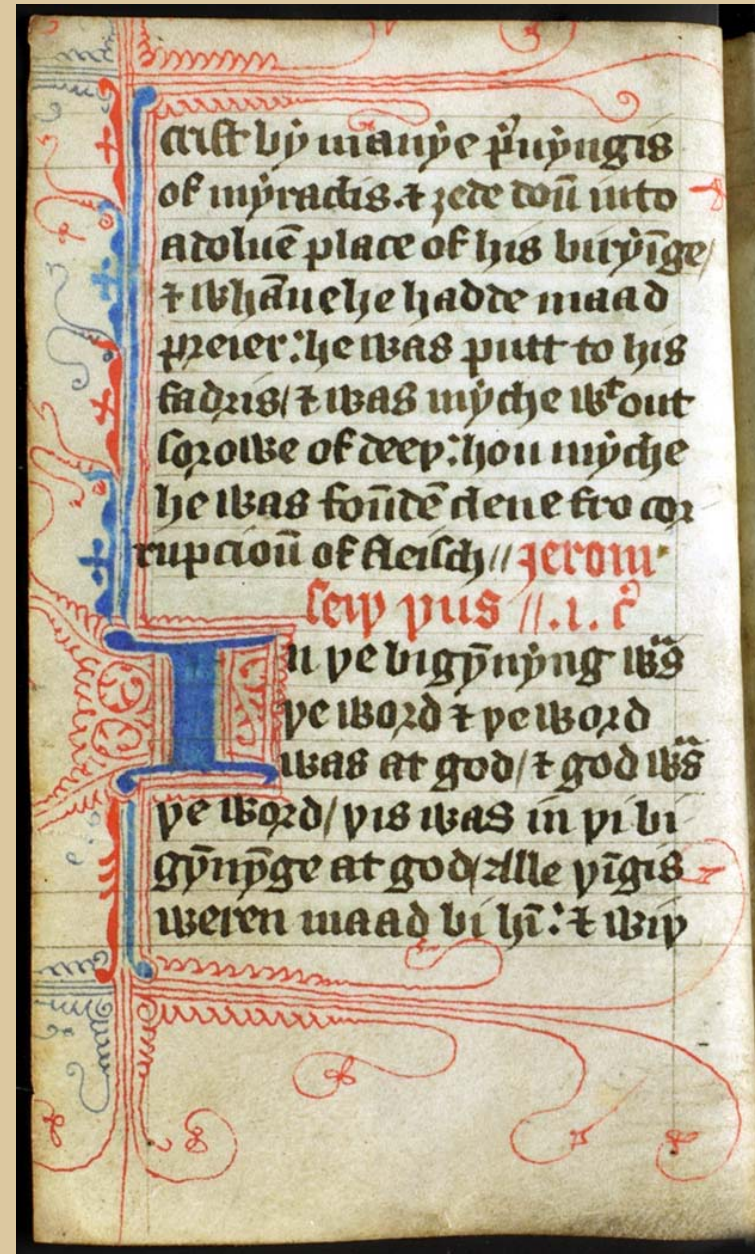 crist bẏ manẏe p̉uẏngis
of mẏraclis. ⁊ ȝede doū into
a doluē place of his birẏīge/
⁊ whāne he hadde maad
preier: he was putt to his
fadris/ ⁊ was mẏche wᵗout
sorowe of deeþ: hou mẏche
he was foūdē clene fro cor
rupcioū of fleisch// Jerom
seiþ þus //.i. c̉
In þe bigẏ̄nẏng wᵃs
þe word ⁊ þe word
was at god/ ⁊ god wᵃs
þe word/ þis was in þi bi
gẏ̄nẏ̄ge at god/ Alle þīgis
weren maad bi hī: ⁊ wiþ